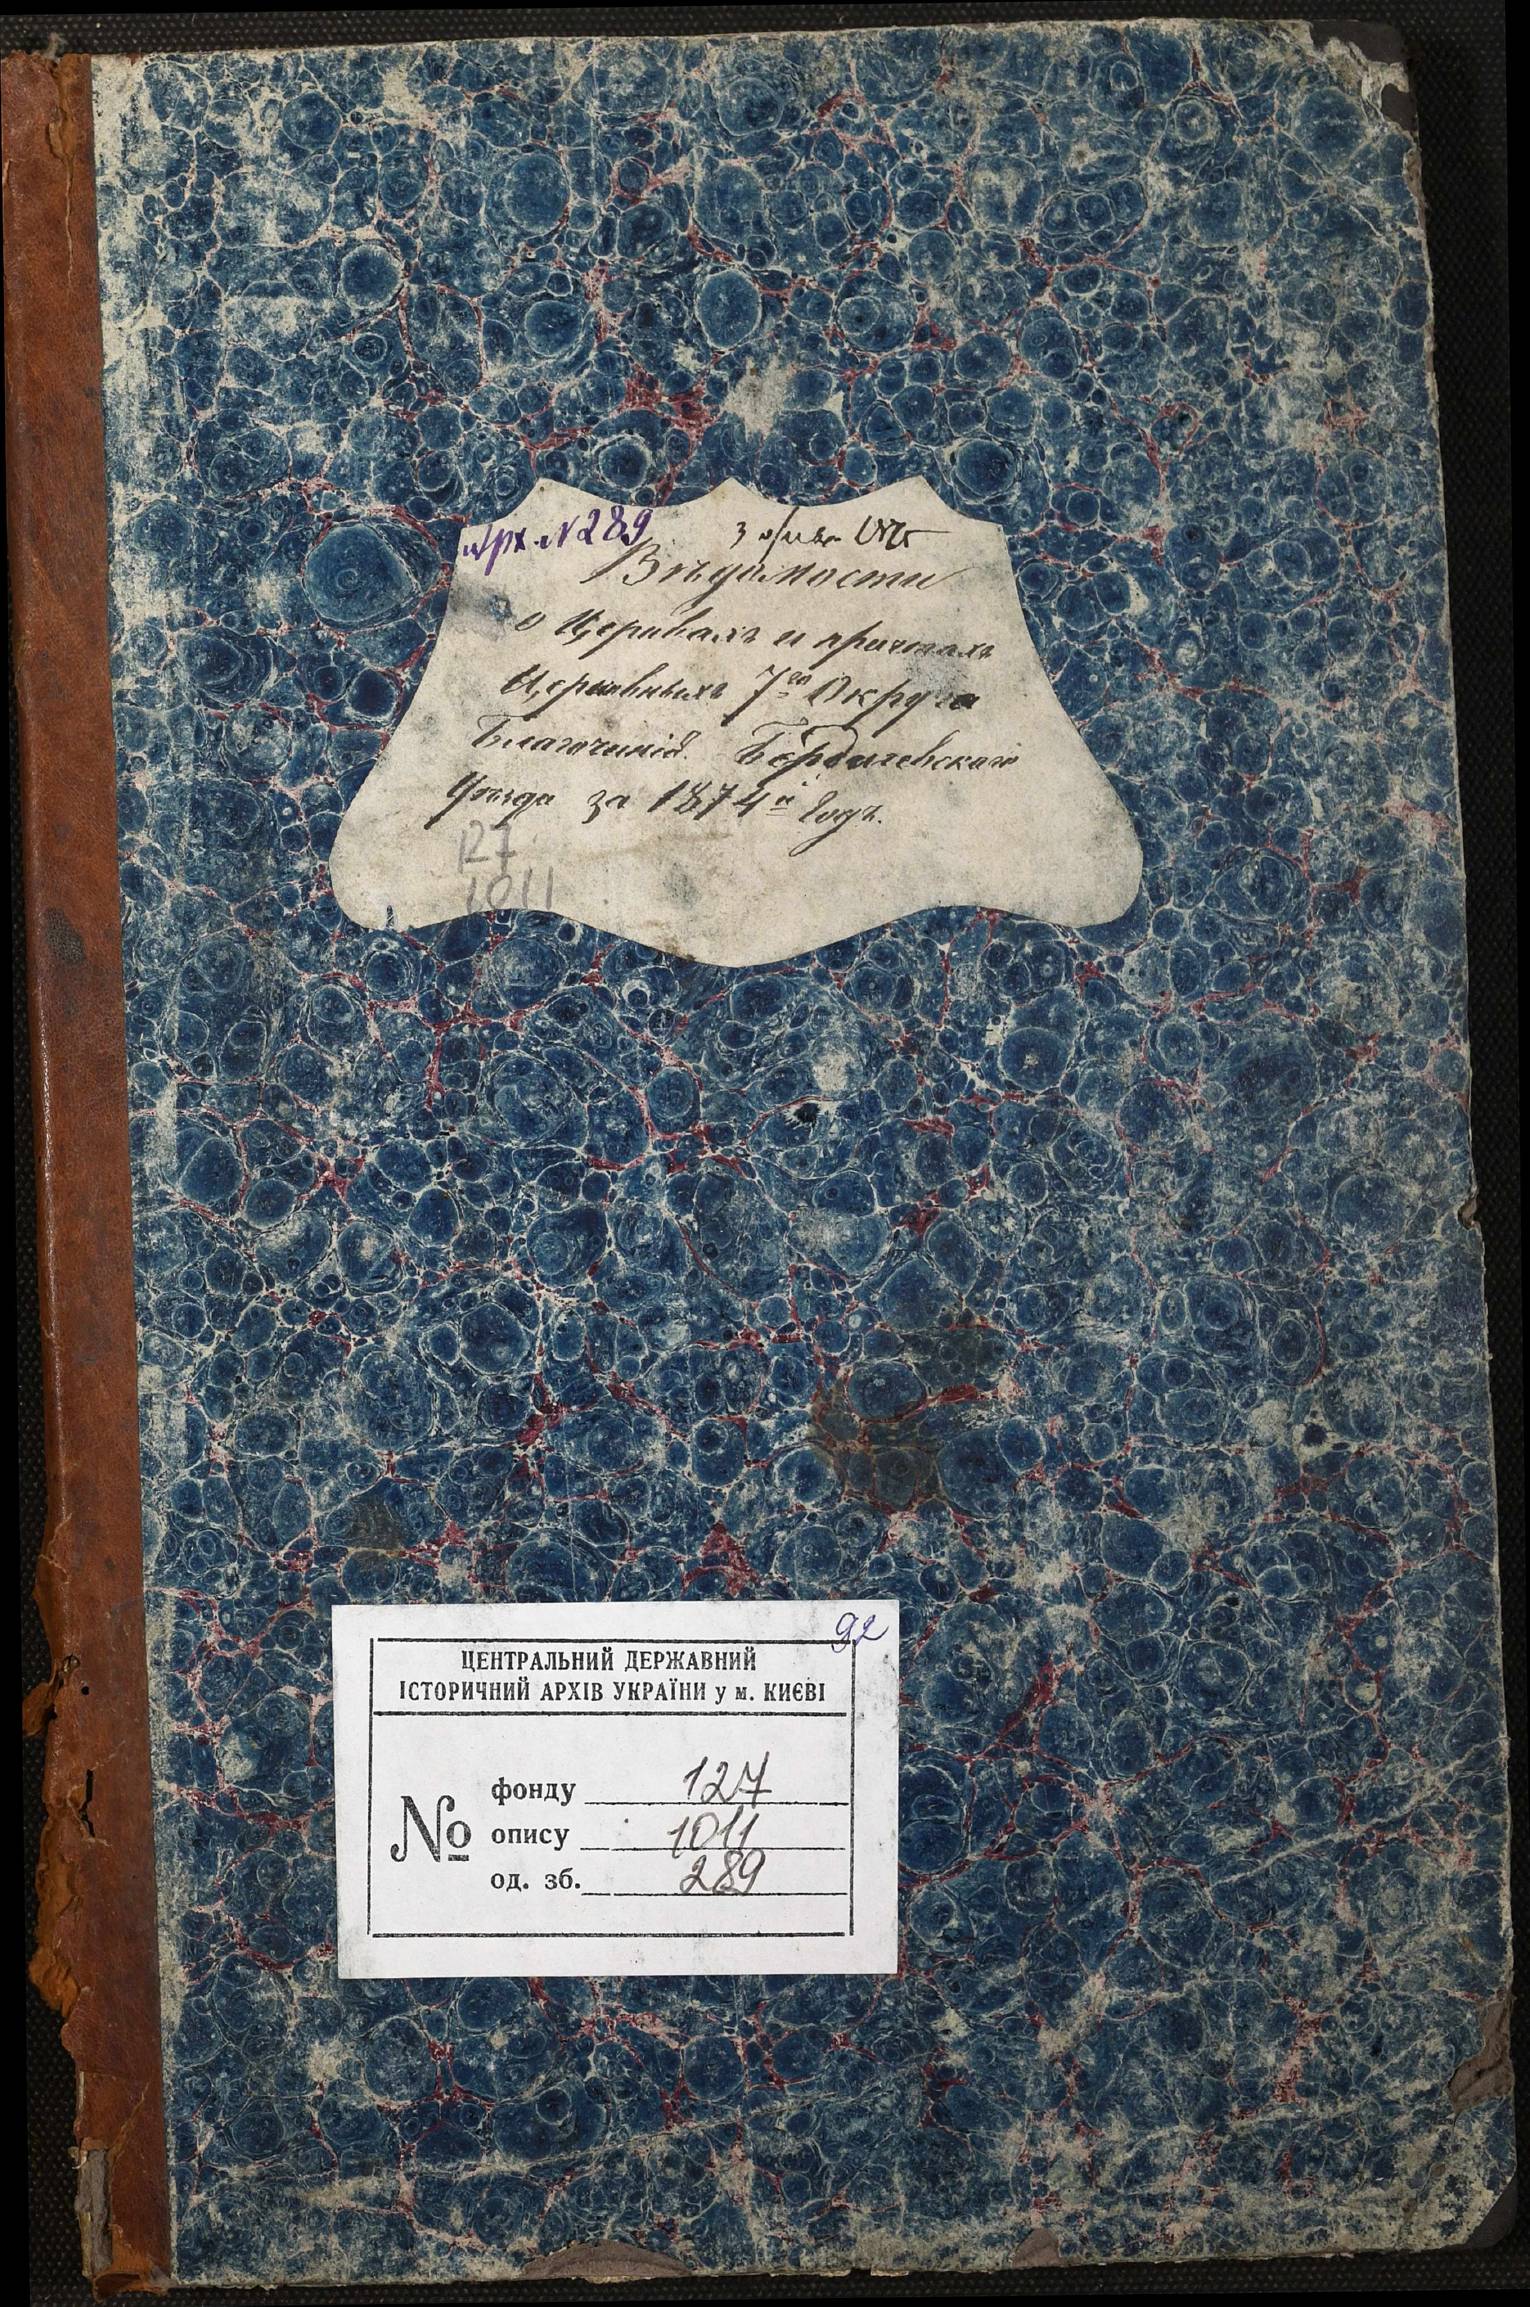 арх. №289
Вѣдомости
о Церквахъ и причтахъ
Церковныхъ 7го Округа
Благочинія Бердичевскаго
Уѣзда за 1874й Годъ.
127
1011
92
ЦЕНТРАЛЬНИЙ ДЕРЖАВНИЙ
ІСТОРИЧНИЙ АРХІВ УКРАЇНИ у м. КИЄВІ
№
фонду 127
опису 1011
од. зб. 289